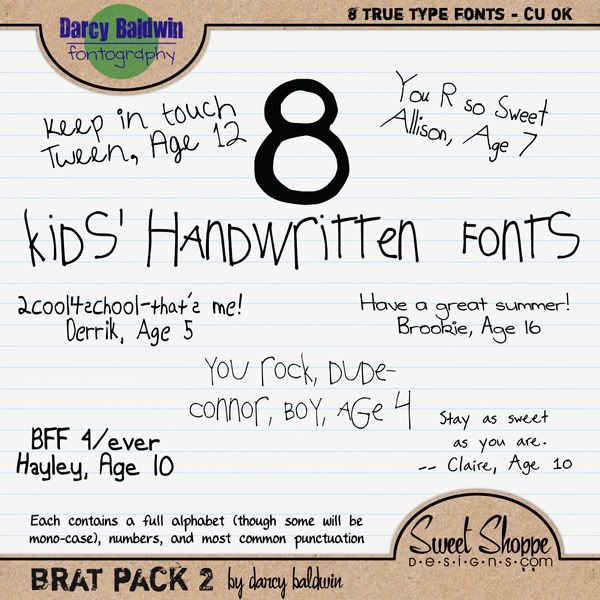 Darcy Baldwin
fontography
8 TRUE TYPE FONTS - CU OK
Keep in touch
Tween, Age 12
8
You R so Sweet
Allison, Age 7
Kids' Handwritten Fonts
2cool4school-that's me!
Derrik, Age 5
Have a great summer!
Brookie, Age 16
You rock, Dude-
connor, Boy, Age 4
BFF 4/ever
Hayley, Age 10
Stay as sweet
as you are.
-- Claire, Age 10
Each contains a full alphabet (though some will be
mono-case), numbers, and most common punctuation
Sweet Shoppe
D·e·s·i·g·n·s.com
BRAT PACK 2 by darcy baldwin